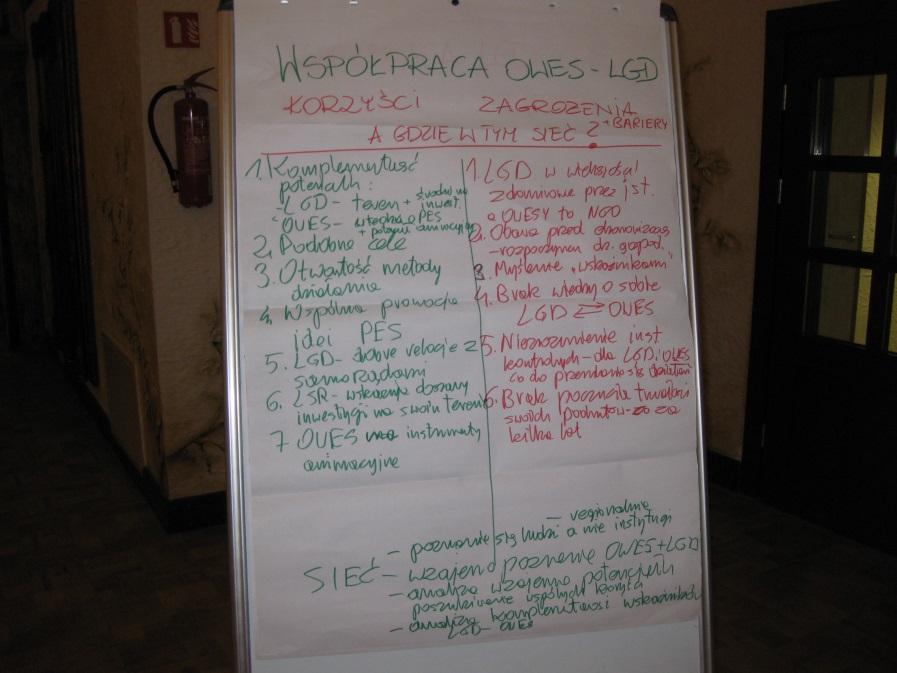 WSPÓŁPRACA OWES - LGD
KORZYŚCI ZAGROŻENIA
+ BARIERY
A GDZIE W TYM SIEĆ?
1. Komplementość
potencjach:
- LGD - teren +
inwest.
- OWES - wiedza o PES
+ animacyjny
2. Podobne cele
3. Otwartość metody
działania
4. Wspólna promocja
idei PES
5. LGD - dobre relacje z
samorządami
6. LSR - wskazanie
inwestycji na swoim terenie
7 OWES ma instrumenty
animacyjne
1. LGD w większości
zdominowe przez jst.
a OWESY to NGO
2. Obawa przed ekonomizacją
- rozpoczynan dz. gospod.
3. Myślenie "wskaźnikami"
4. Brak wiedzy o sobie
LGD ⇄ OWES
5. Niezrozumienie inst
kontrolnych - dla LGD i OWES
co do przenikania się działań
6. Brak poczucia trwałości
swoich podmiotów - co za
kilka lat
- regionalne
SIEĆ - poznanie się ludzi a nie instytucji
- wzajemo poznenie OWES + LGD
- analiza wzajemno potencjach
poszukiwanie wspólnych
- analiza komplementarosi wskaźnikach
LGD - OWES